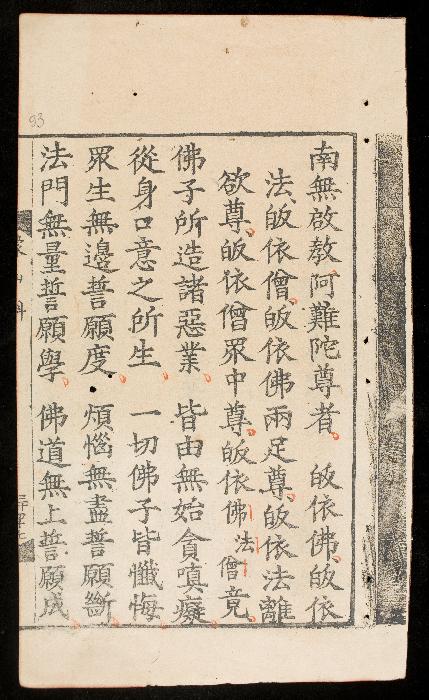 南無啟教阿難陀尊者 皈依佛皈依
法皈依僧皈依佛兩足尊皈依法離
欲尊皈依僧眾中尊皈依佛法僧竟
佛子所造諸惡業 皆由無始貪嗔癡
從身口意之所生 一切佛子皆懺悔
眾生無邊誓願度 煩惱無盡誓願斷
法門無量誓願學 佛道無上誓願成
93